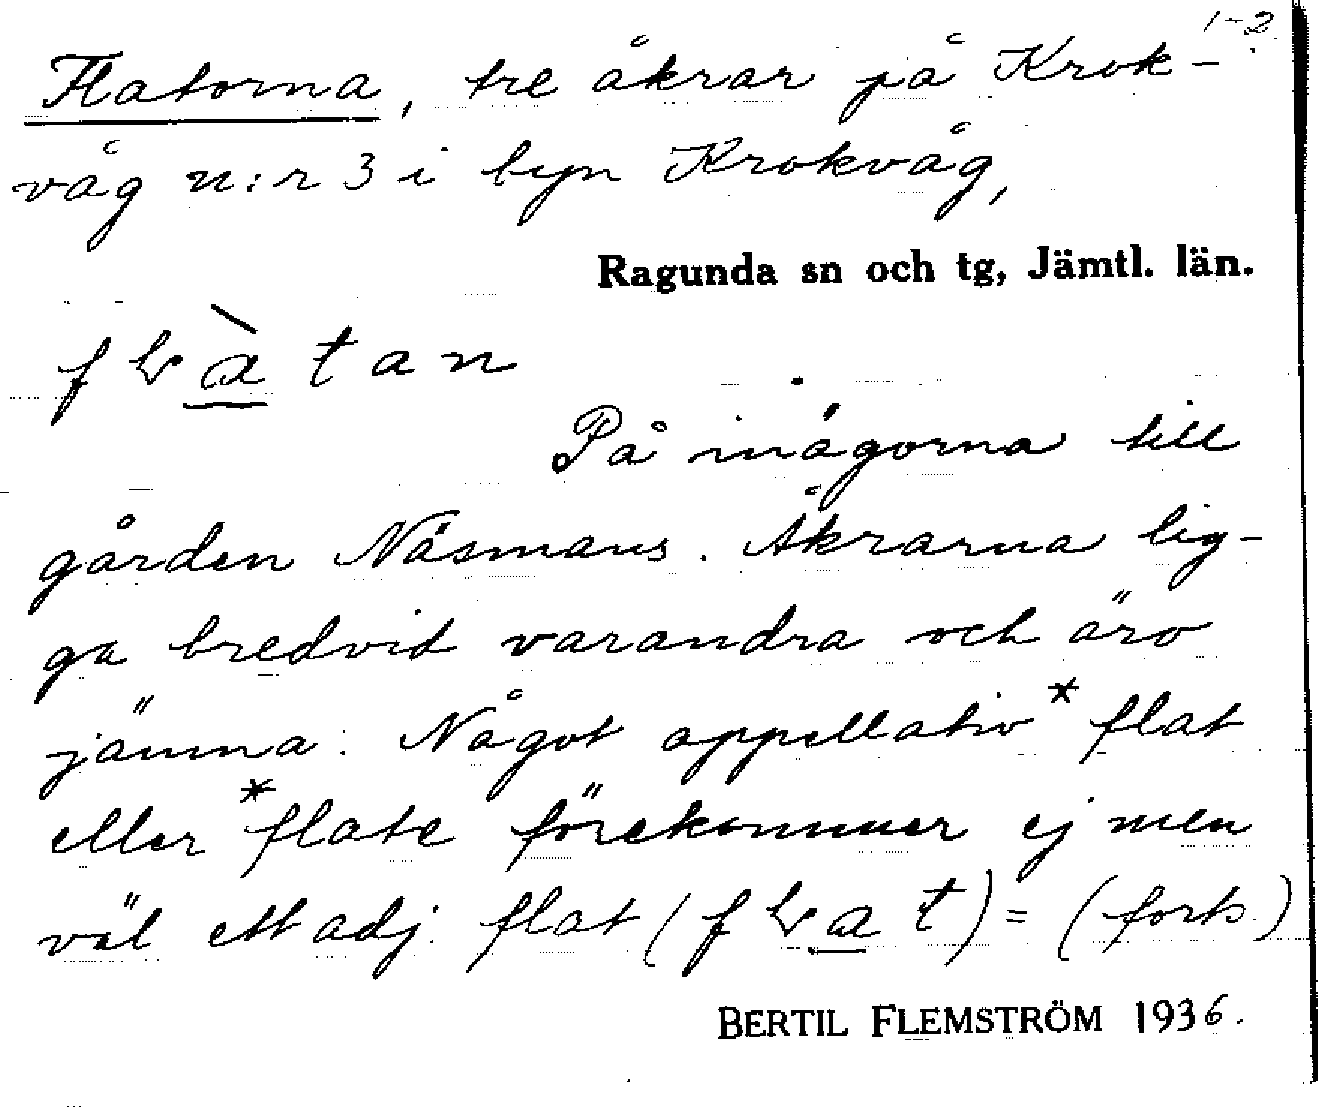 1-2
Flatorna, tre åkrar på Krok-
våg n:r 3 i byn Krokvåg,
Ragunda sn och tg, Jämtl. län.
På inägorna till
gården Näsmans. Åkrarna lig-
ga bredvid varandra och äro
jämna. Något appellativ *flat
eller *flate förekommer ej men
väl ett adj. flat ( ) = (forts.)
BERTIL FLEMSTRÖM 1936.